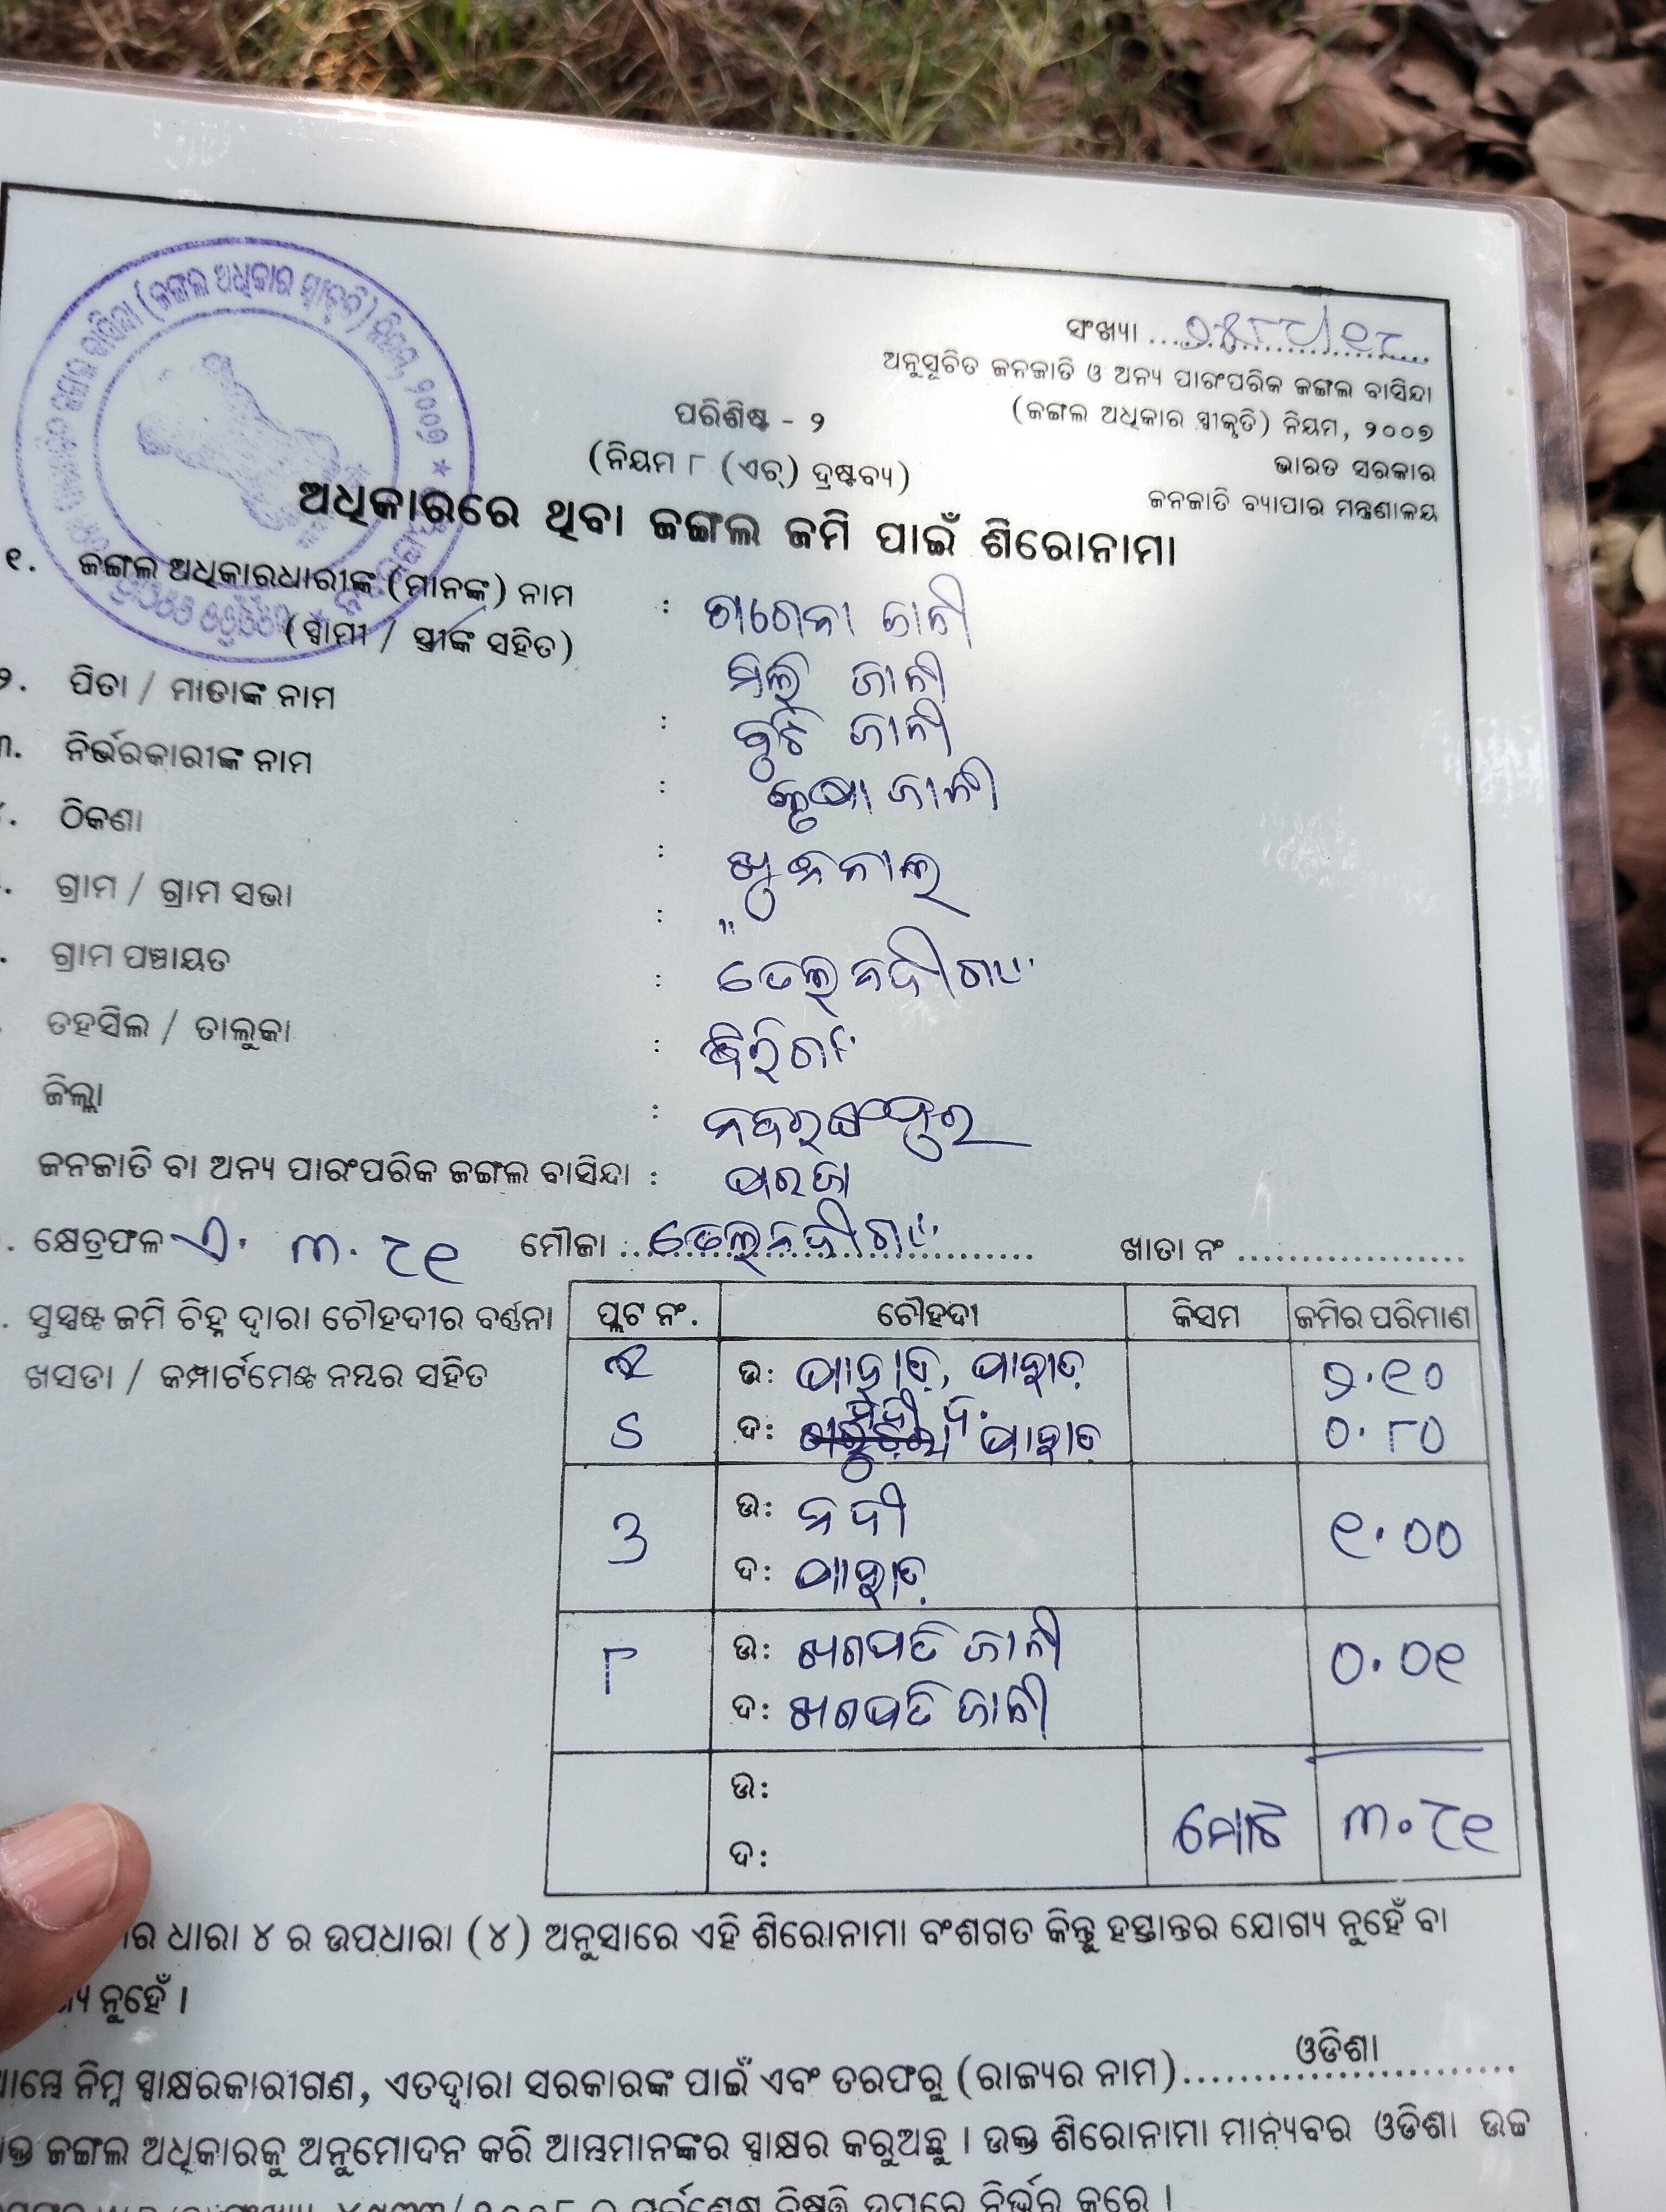 (ଜଙ୍ଗଲ ଅଧିକାର ସ୍ୱୀକୃତି) ନିୟମ, ୨୦୦୭ ★
ସଂଖ୍ୟା
ଅନୁସୂଚିତ ଜନଜାତି ଓ ଅନ୍ୟ ପାରଂପରିକ ଜଙ୍ଗଲ ବାସିନ୍ଦା
ପରିଶିଷ୍ଟ - ୨ (ଜଙ୍ଗଲ ଅଧିକାର ସ୍ୱୀକୃତି) ନିୟମ, ୨୦୦୭
(ନିୟମ ୮ (ଏଚ୍) ଦ୍ରଷ୍ଟବ୍ୟ) ଭାରତ ସରକାର
ଜନଜାତି ବ୍ୟାପାର ମନ୍ତ୍ରଣାଳୟ
ଅଧିକାରରେ ଥିବା ଜଙ୍ଗଲ ଜମି ପାଇଁ ଶିରୋନାମା
୧. ଜଙ୍ଗଲ ଅଧିକାରଧାରୀଙ୍କ (ମାନଙ୍କ) ନାମ : ଜାନୀ
(ସ୍ୱାମୀ / ସ୍ତ୍ରୀଙ୍କ ସହିତ) ଜାନୀ
୨. ପିତା / ମାତାଙ୍କ ନାମ : ବୁଟି ଜାନୀ
୩. ନିର୍ଭରକାରୀଙ୍କ ନାମ : ଜାନୀ
ଠିକଣା :
ଗ୍ରାମ / ଗ୍ରାମ ସଭା : "
ଗ୍ରାମ ପଞ୍ଚାୟତ : ତେଲନଦୀଗାଁ
ତହସିଲ / ତାଲୁକା : ଝରିଗାଁ
ଜିଲ୍ଲା : ନବରଙ୍ଗପୁର
ଜନଜାତି ବା ଅନ୍ୟ ପାରଂପରିକ ଜଙ୍ଗଲ ବାସିନ୍ଦା : ପରଜା
କ୍ଷେତ୍ରଫଳ ଏ. ୩.୯୧ ମୌଜା ତେଲନଦୀଗାଁ ଖାତା ନଂ
ସୁସ୍ପଷ୍ଟ ଜମି ଚିହ୍ନ ଦ୍ୱାରା ଚୌହଦୀର ବର୍ଣ୍ଣନା ପ୍ଲଟ ନଂ. ଚୌହଦୀ କିସମ ଜମିର ପରିମାଣ
ଖସଡା / କମ୍ପାର୍ଟମେଣ୍ଟ ନମ୍ବର ସହିତ ଉ: ପାହାଡ଼, ପାହାଡ଼ ୨.୧୦
ଦ: ପାହାଡ଼ ୦.୮୦
ଉ: ନଦୀ
୧.୦୦
ଦ: ପାହାଡ଼
ଉ: ଖଗପତି ଜାନୀ
୮ ୦.୦୧
ଦ: ଖଗପତି ଜାନୀ
ଉ:
ମୋଟ ୩.୯୧
ଦ:
ଧାରା ୪ ର ଉପଧାରା (୪) ଅନୁସାରେ ଏହି ଶିରୋନାମା ବଂଶଗତ କିନ୍ତୁ ହସ୍ତାନ୍ତର ଯୋଗ୍ୟ ନୁହେଁ ବା
ନୁହେଁ ।
ନିମ୍ନ ସ୍ୱାକ୍ଷରକାରୀଗଣ, ଏତଦ୍ୱାରା ସରକାରଙ୍କ ପାଇଁ ଏବଂ ତରଫରୁ (ରାଜ୍ୟର ନାମ) ଓଡିଶା
ଜଙ୍ଗଲ ଅଧିକାରକୁ ଅନୁମୋଦନ କରି ଆମ୍ଭମାନଙ୍କର ସ୍ୱାକ୍ଷର କରୁଅଛୁ । ଉକ୍ତ ଶିରୋନାମା ମାନ୍ୟବର ଓଡିଶା ଉଚ୍ଚ
ଉପରେ ନିର୍ଭର କରେ ।